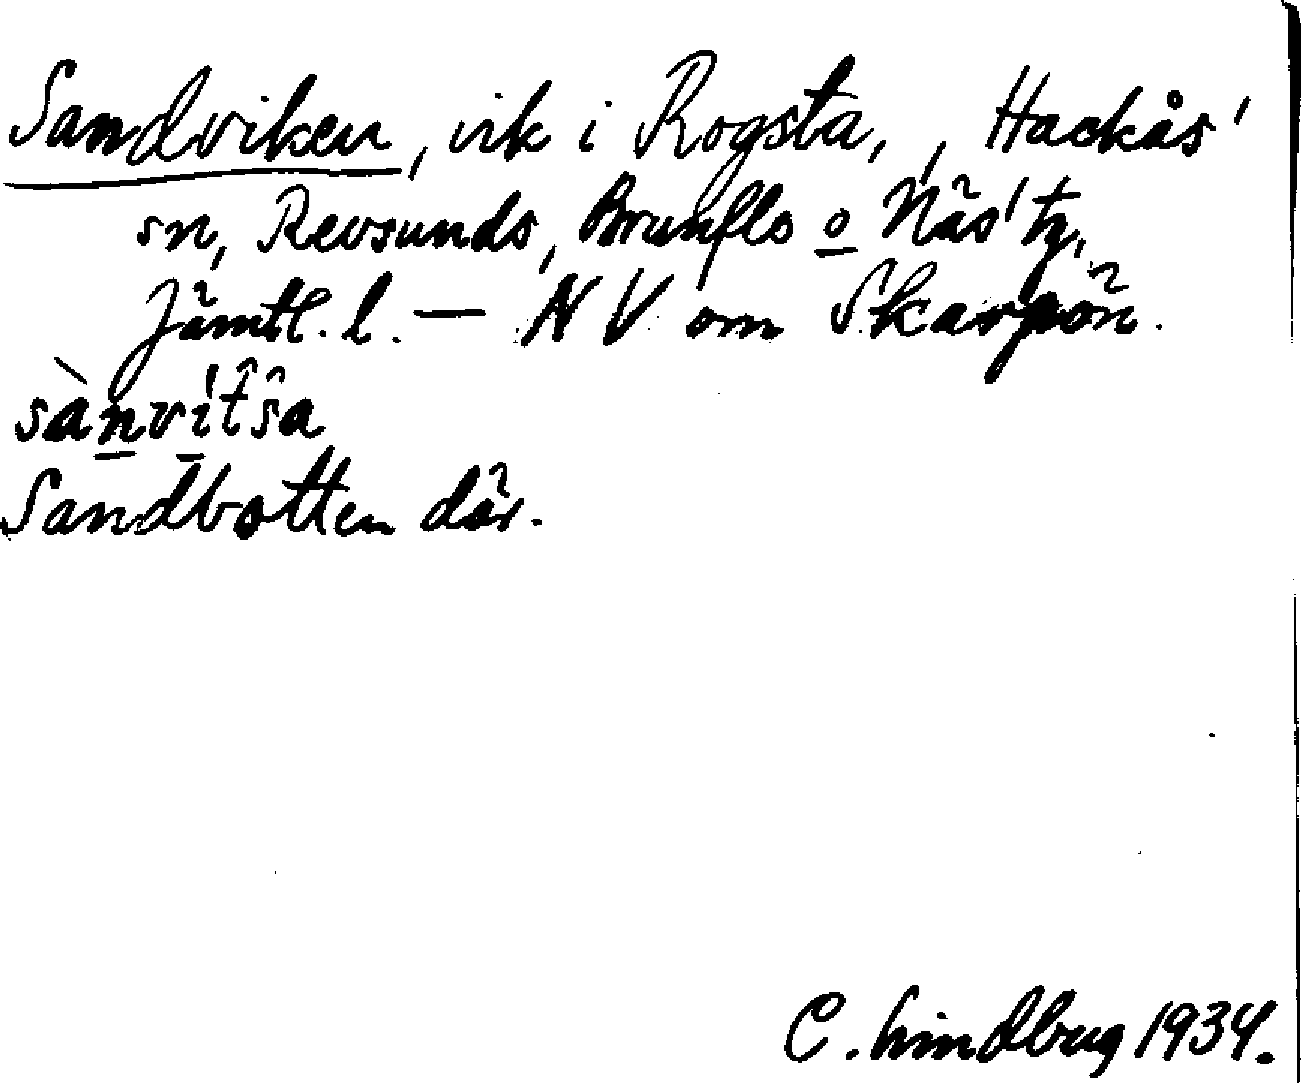 Sandviken, vik i Rogsta, , Hackås'
sn, Revsunds, Brunflo o Näs' tg,
Jämtl. l. — NV om Skarpön.
sànvi̱t̂ŝa
Sandbotten där.
C. Lindberg 1934.